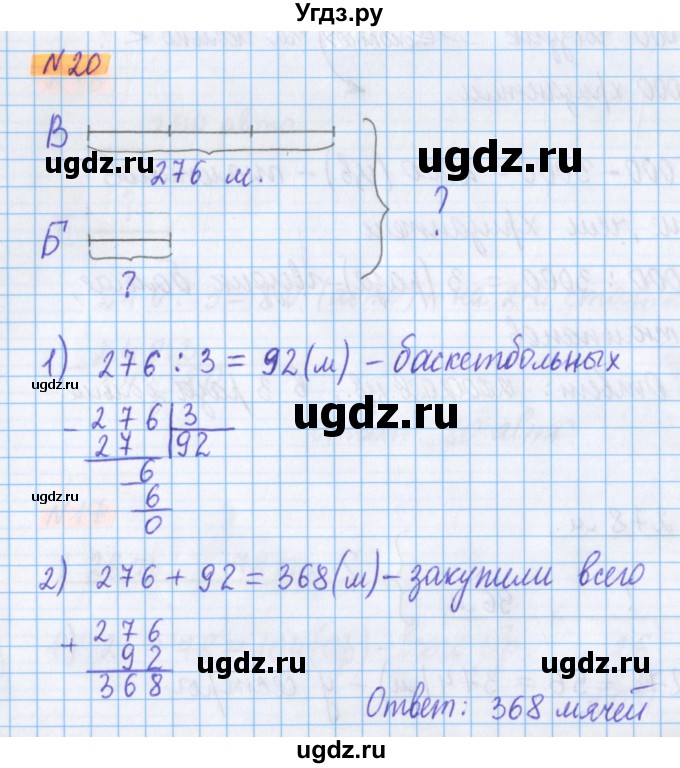 Угдз.ру
№20
В
276 м.
?
Б
?
1) 276 : 3 = 92 (м) – баскетбольных
- 276 | 3
27 | 92
6
6
0
2) 276 + 92 = 368 (м) – закупили всего
+ 276
92
368
Ответ: 368 мячей
ugdz.ru
ugdz.ru
ugdz.ru
ugdz.ru
ugdz.ru
ugdz.ru
ugdz.ru
ugdz.ru
ugdz.ru